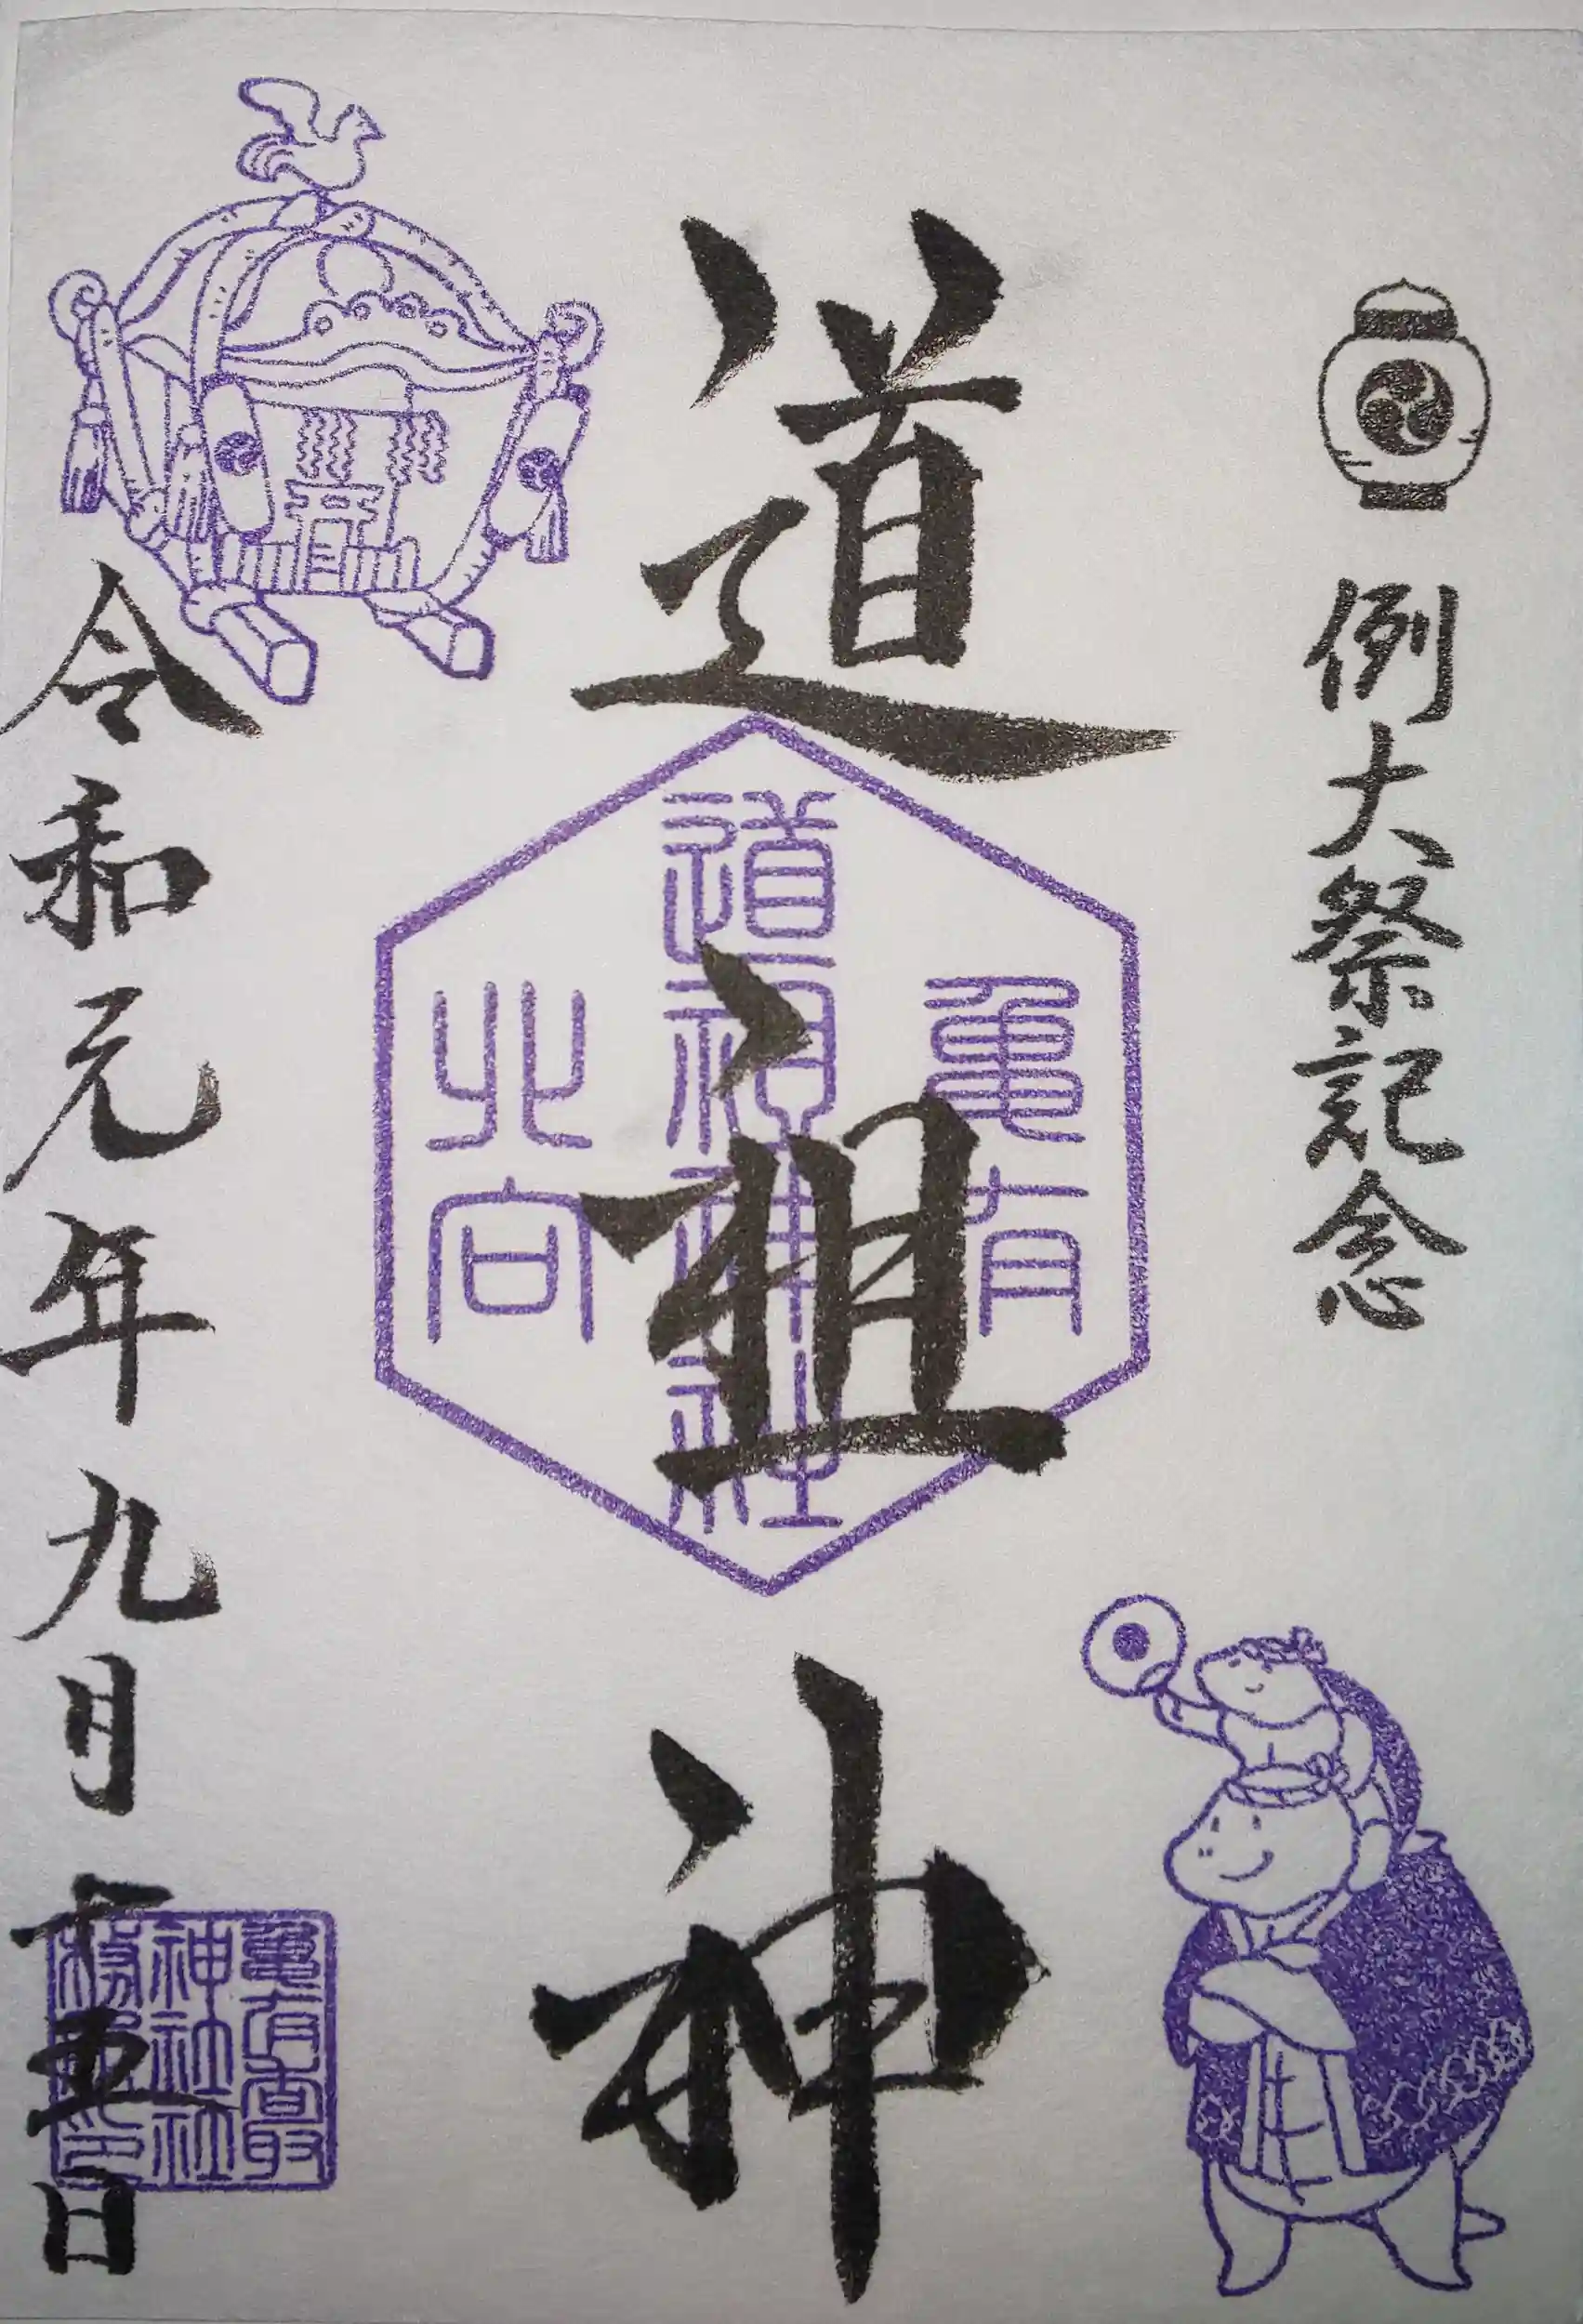 例大祭記念
道祖神
亀有
道祖神社
北向
令和元年九月十五日
亀有香取
神社社
務所印